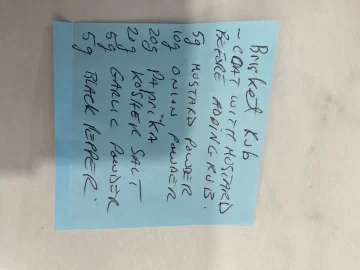 Brisket Rub
- COAT WITH MUSTARD
BEFORE ADDING RUB.
5g MUSTARD POWDER
10g ONION POWDER
20g PAPRIKA
22g KOSHER SALT
5g GARLIC POWDER
5g BLACK PEPPER.